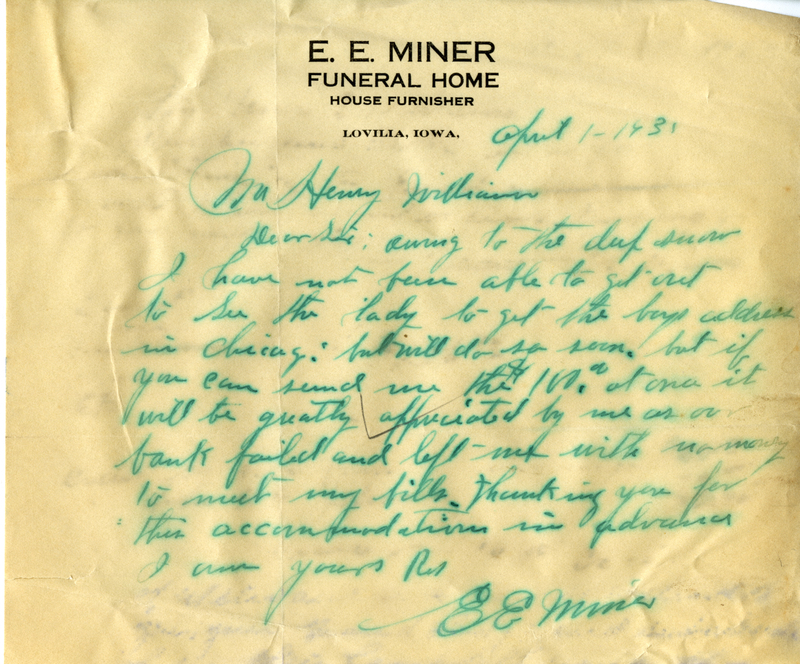 E. E. MINER
FUNERAL HOME
HOUSE FURNISHER
LOVILIA, IOWA,
April 1 - 1931
Mr Henry Williams
Dear Sir; owing to the deep snow
I have not been able to get out
to see the lady to get the boys address
in Chicag. but will do so soon. but if
you can send me the $100.00 at once it
will be greatly appreciated by me as our
bank failed and left me with no money
to meet my bills. Thanking you for
this accommodations in advance
I am yours Res
E E Miner